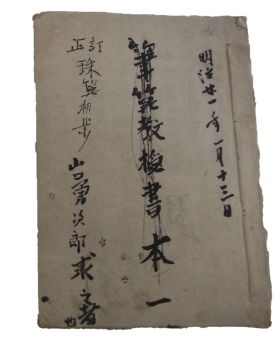 明治廿一年一月十三日
筆筭教授書本一
訂正珠筭初歩
山口勇次郎求之者